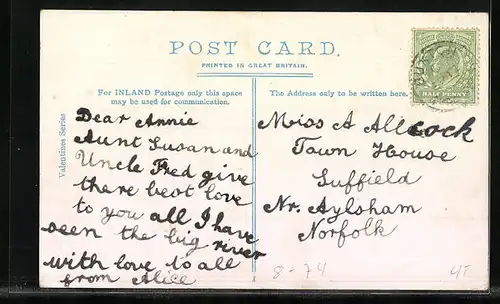 POST CARD.
PRINTED IN GREAT BRITAIN.
For INLAND Postage only this space
may be used for communication.
The Address only to be written here.
HALF PENNY
Valentines Series
Dear Annie
Aunt Susan and
Uncle Fred give
there best love
to you all I have
seen the big river
with love to all
from Alice
Miss A Allcock
Town House
Suffield
Nr. Aylsham
Norfolk
8-74